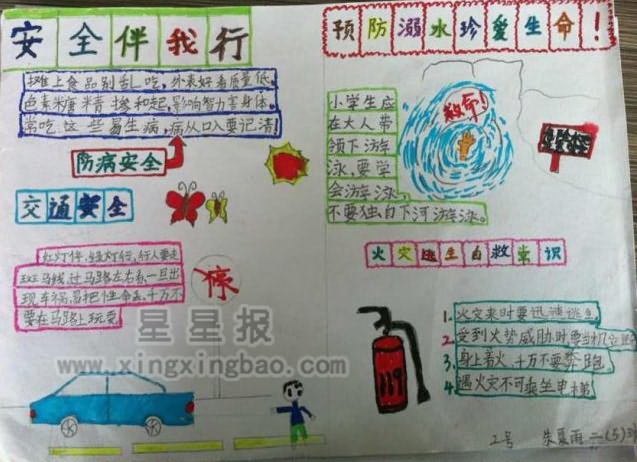 安全伴我行
摊上食品别乱吃，外表好看质量低。
色素糖精掺和起，影响智力害身体。
常吃这些易生病，病从口入要记清
防病安全
交通安全
红灯停，绿灯行，行人要走
斑马线，过马路左右看，一旦出
现车祸，易把性命丢，千万不
要在马路上玩耍
停
预防溺水珍爱生命！
小学生应
在大人带
领下游
泳，要学
会游泳，
不要独自下河游泳。
救命！
火灾逃生自救常识
1.火灾来时要迅速逃生
2.受到火势威胁时要当机立
3.身上着火，千万不要奔跑
4.遇火灾不可乘坐电梯
119
2号 朱夏雨 二(5)班
星星报
www.xingxingbao.com